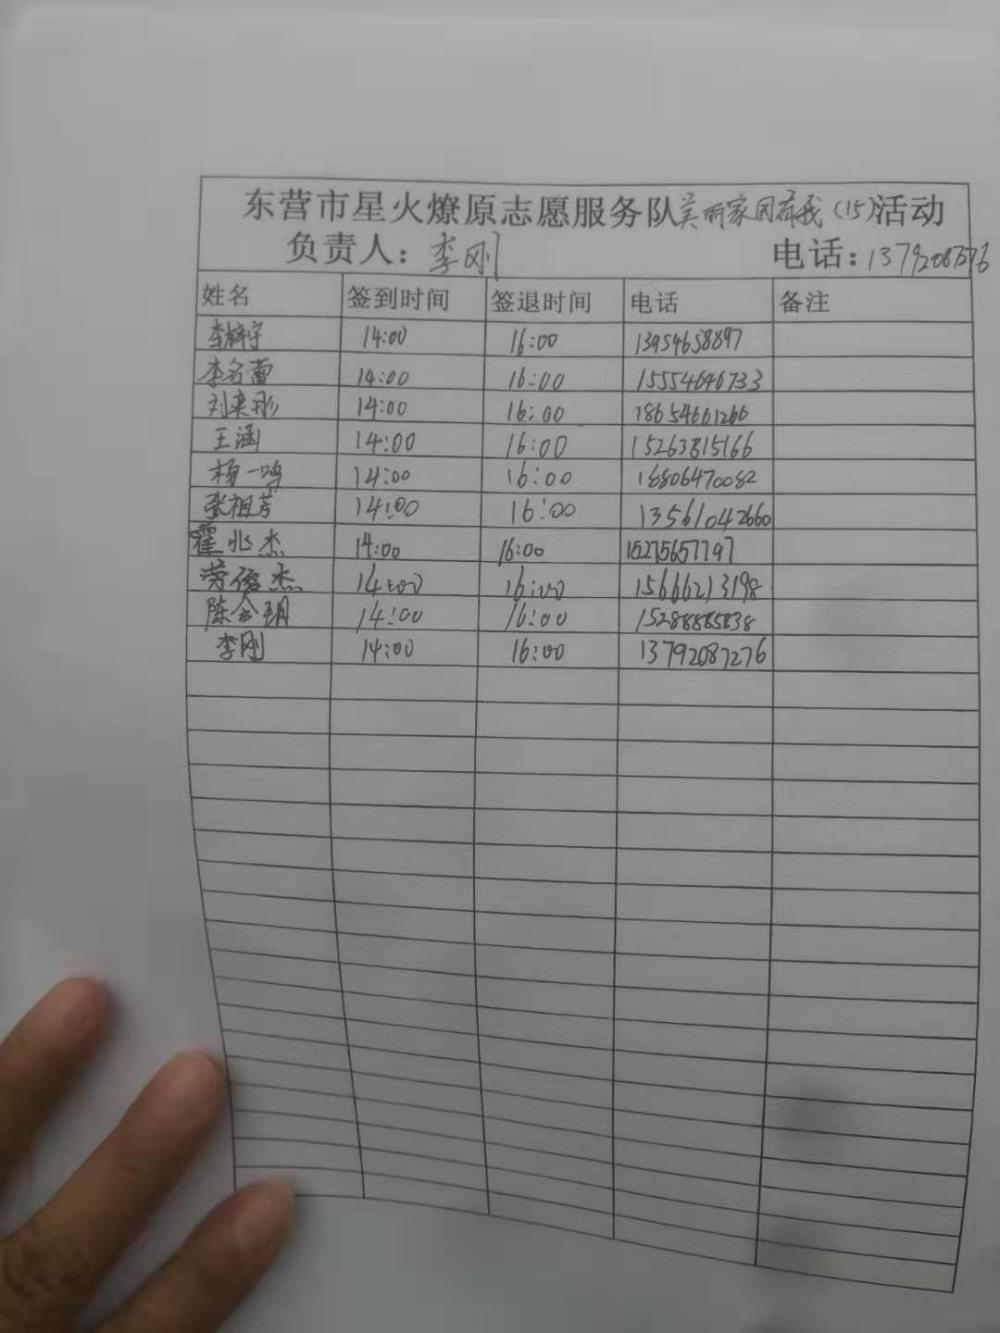 东营市星火燎原志愿服务队美丽家园有我（15）活动
负责人：李刚 电话：13792087276
姓名 签到时间 签退时间 电话 备注
李梓宇 14:00 16:00 13954658897
李名蕾 14:00 16:00 15554646733
刘奕彤 14:00 16:00 18654661266
王涵 14:00 16:00 15263815166
杨一鸣 14:00 16:00 18806470082
张祖芳 14:00 16:00 13561042660
霍兆杰 14:00 16:00 15275657797
劳俊杰 14:00 16:00 15666213198
陈 14:00 16:00 15288885838
李刚 14:00 16:00 13792087276